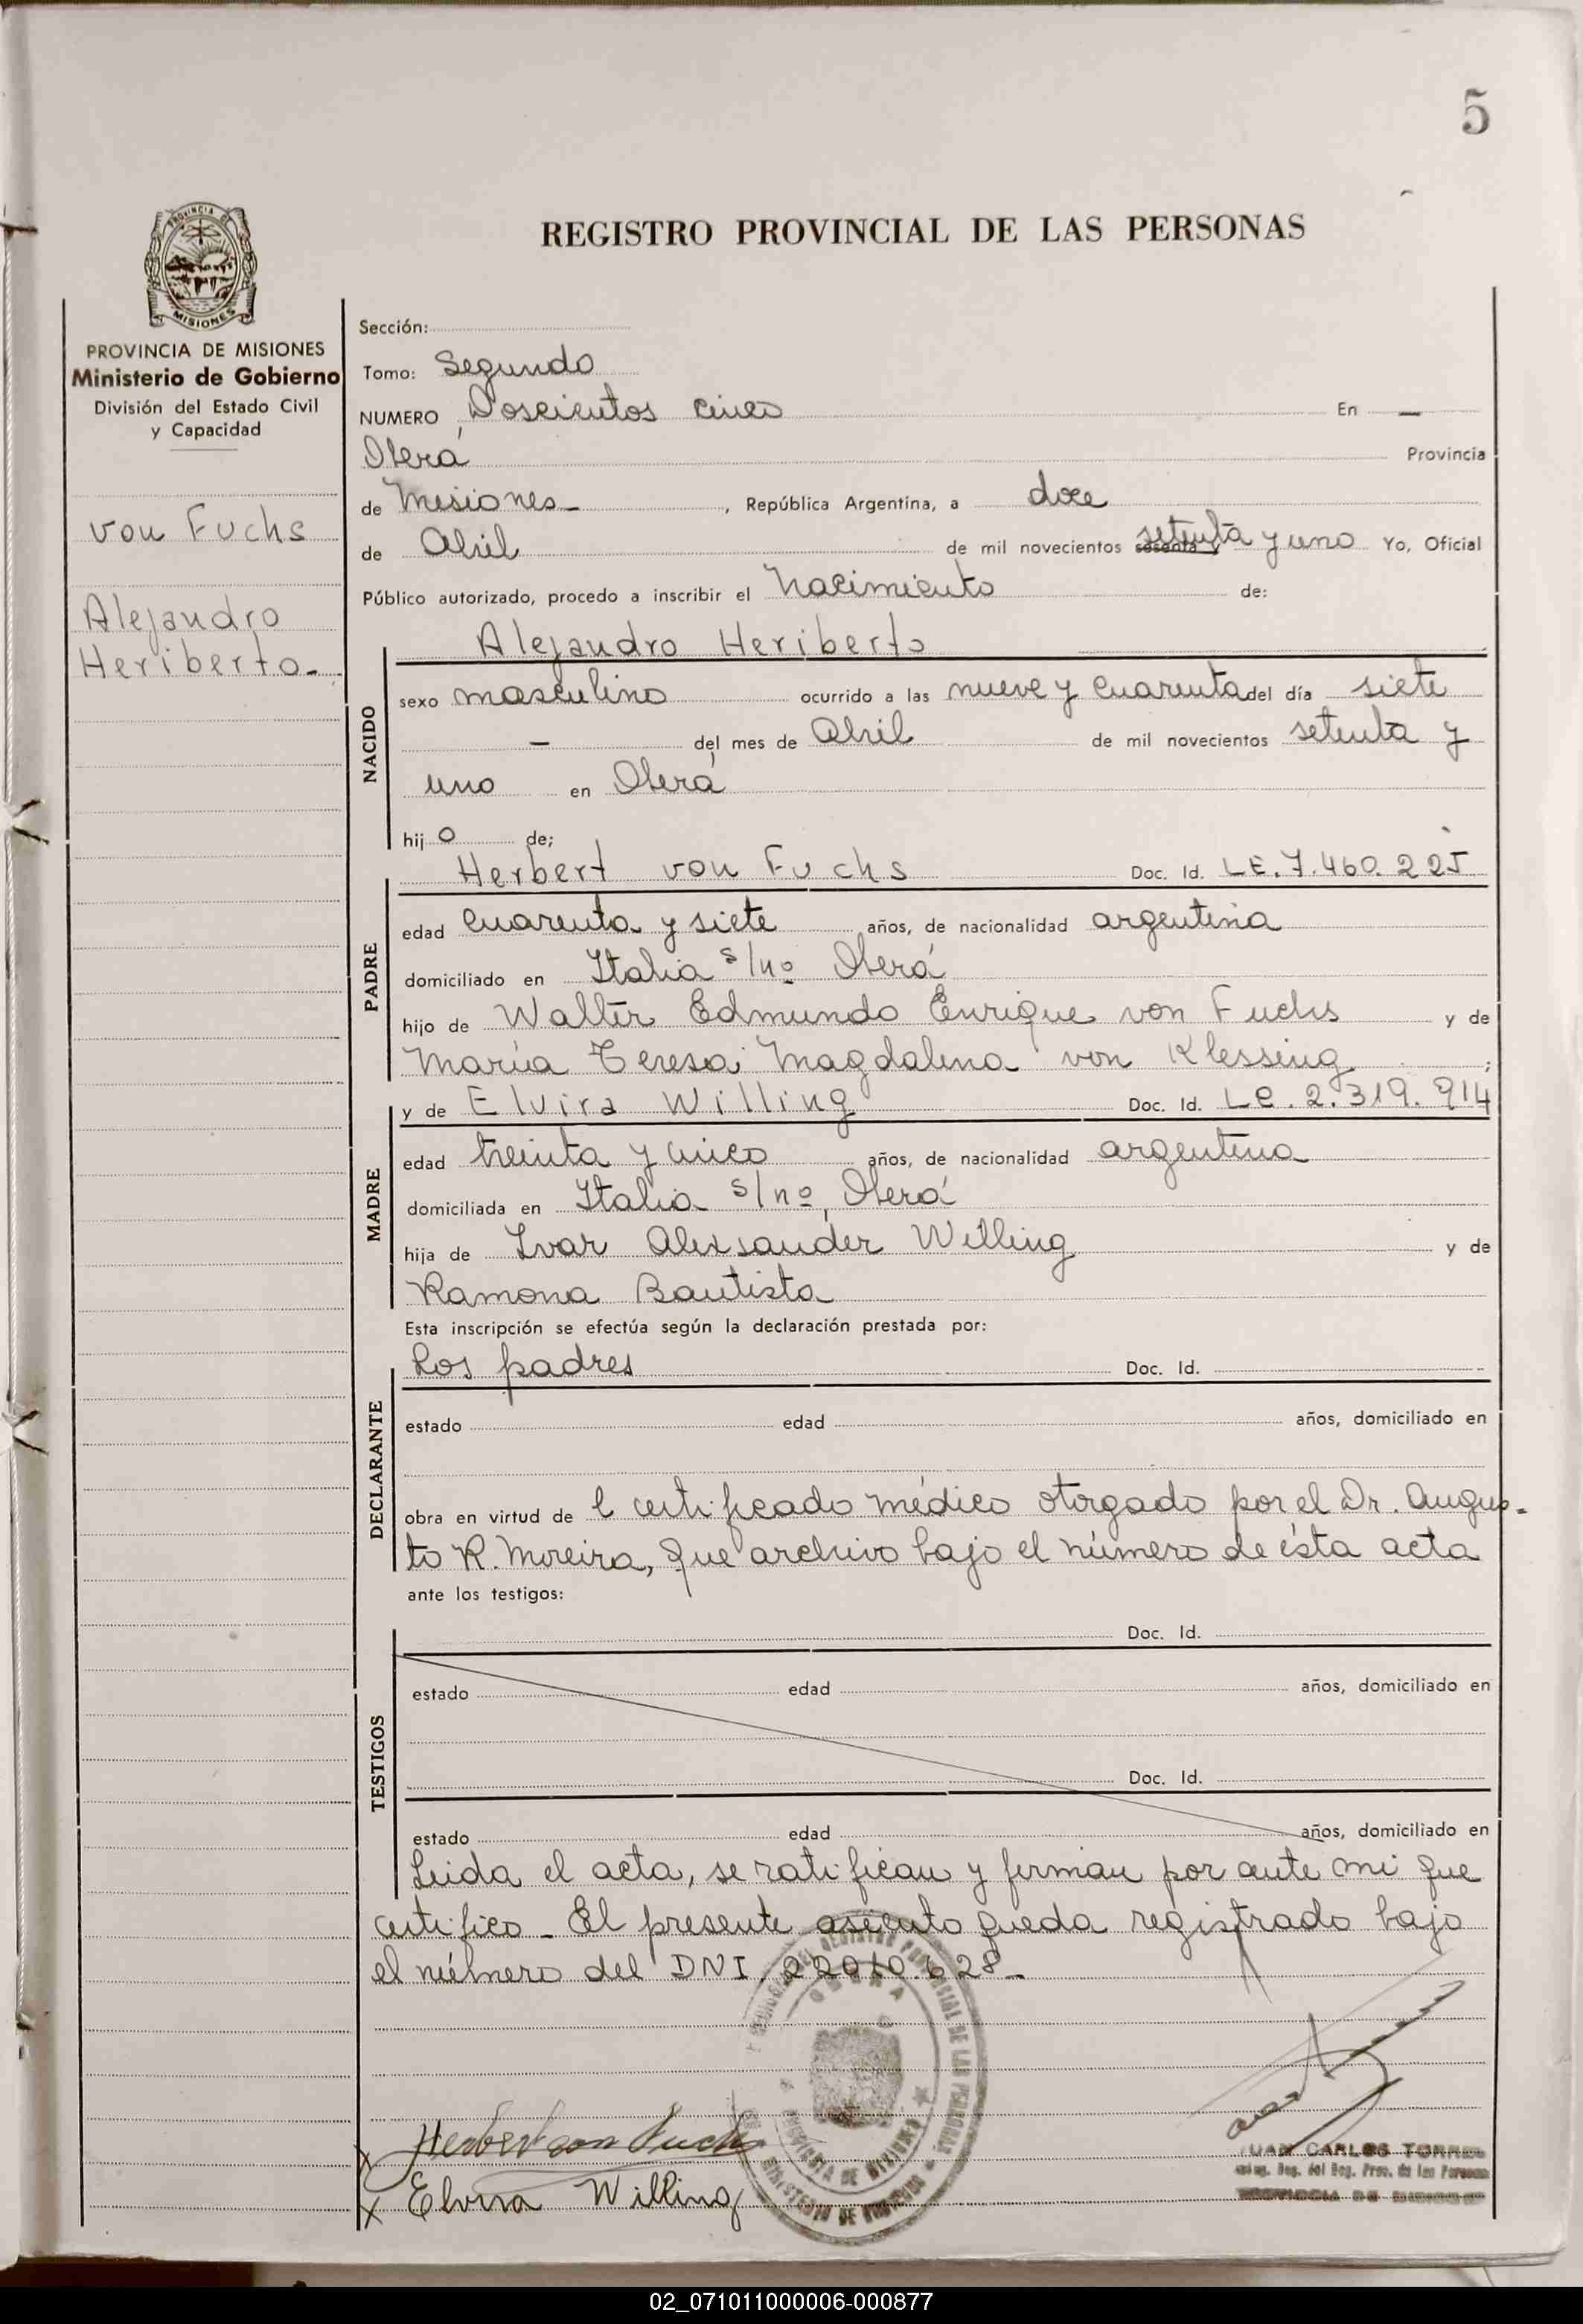 5
REGISTRO PROVINCIAL DE LAS PERSONAS
PROVINCIA DE MISIONES
PROVINCIA DE MISIONES
Ministerio de Gobierno
División del Estado Civil
y Capacidad
von Fuchs
Alejandro
Heriberto.-
Sección:
Tomo: Segundo
NUMERO Doscientos cinco En —
Oberá Provincia
de Misiones - , República Argentina, a doce
de Abril de mil novecientos sesenta y setenta y uno Yo, Oficial
Público autorizado, procedo a inscribir el Nacimiento de:
Alejandro Heriberto
NACIDO
sexo masculino ocurrido a las nueve y cuarenta del día siete
— del mes de Abril de mil novecientos setenta y
uno en Oberá
hij o de;
Herbert von Fuchs Doc. Id. LE. 7.460.225
PADRE
edad cuarenta y siete años, de nacionalidad argentina
domiciliado en Italia s/nº Oberá
hijo de Walter Edmundo Enrique von Fuchs y de
María Teresa Magdalena von Klessing ;
y de Elvira Willing Doc. Id. LC. 2.319.914
MADRE
edad treinta y cinco años, de nacionalidad argentina
domiciliada en Italia s/nº, Oberá
hija de Ivar Alexsander Willing y de
Ramona Bautista
Esta inscripción se efectúa según la declaración prestada por:
Los padres Doc. Id.
DECLARANTE
estado edad años, domiciliado en
obra en virtud de l certificado médico otorgado por el Dr. Augus-
to R. Moreira, que archivo bajo el número de ésta acta
ante los testigos:
Doc. Id.
TESTIGOS
estado edad años, domiciliado en
Doc. Id.
estado edad años, domiciliado en
Leida el acta, se ratifican y firman por ante mi que
certifico - El presente asiento queda registrado bajo
el número del DNI, 22010.628 -
Herbert von Fuchs
x Elvira Willing
JUAN CARLOS TORRES
Reg. del Reg. Prov. de las Personas
PROVINCIA DE MISIONES
OBERA
PROVINCIA DE MISIONES
MINISTERIO DE GOBIERNO
02_071011000006-000877